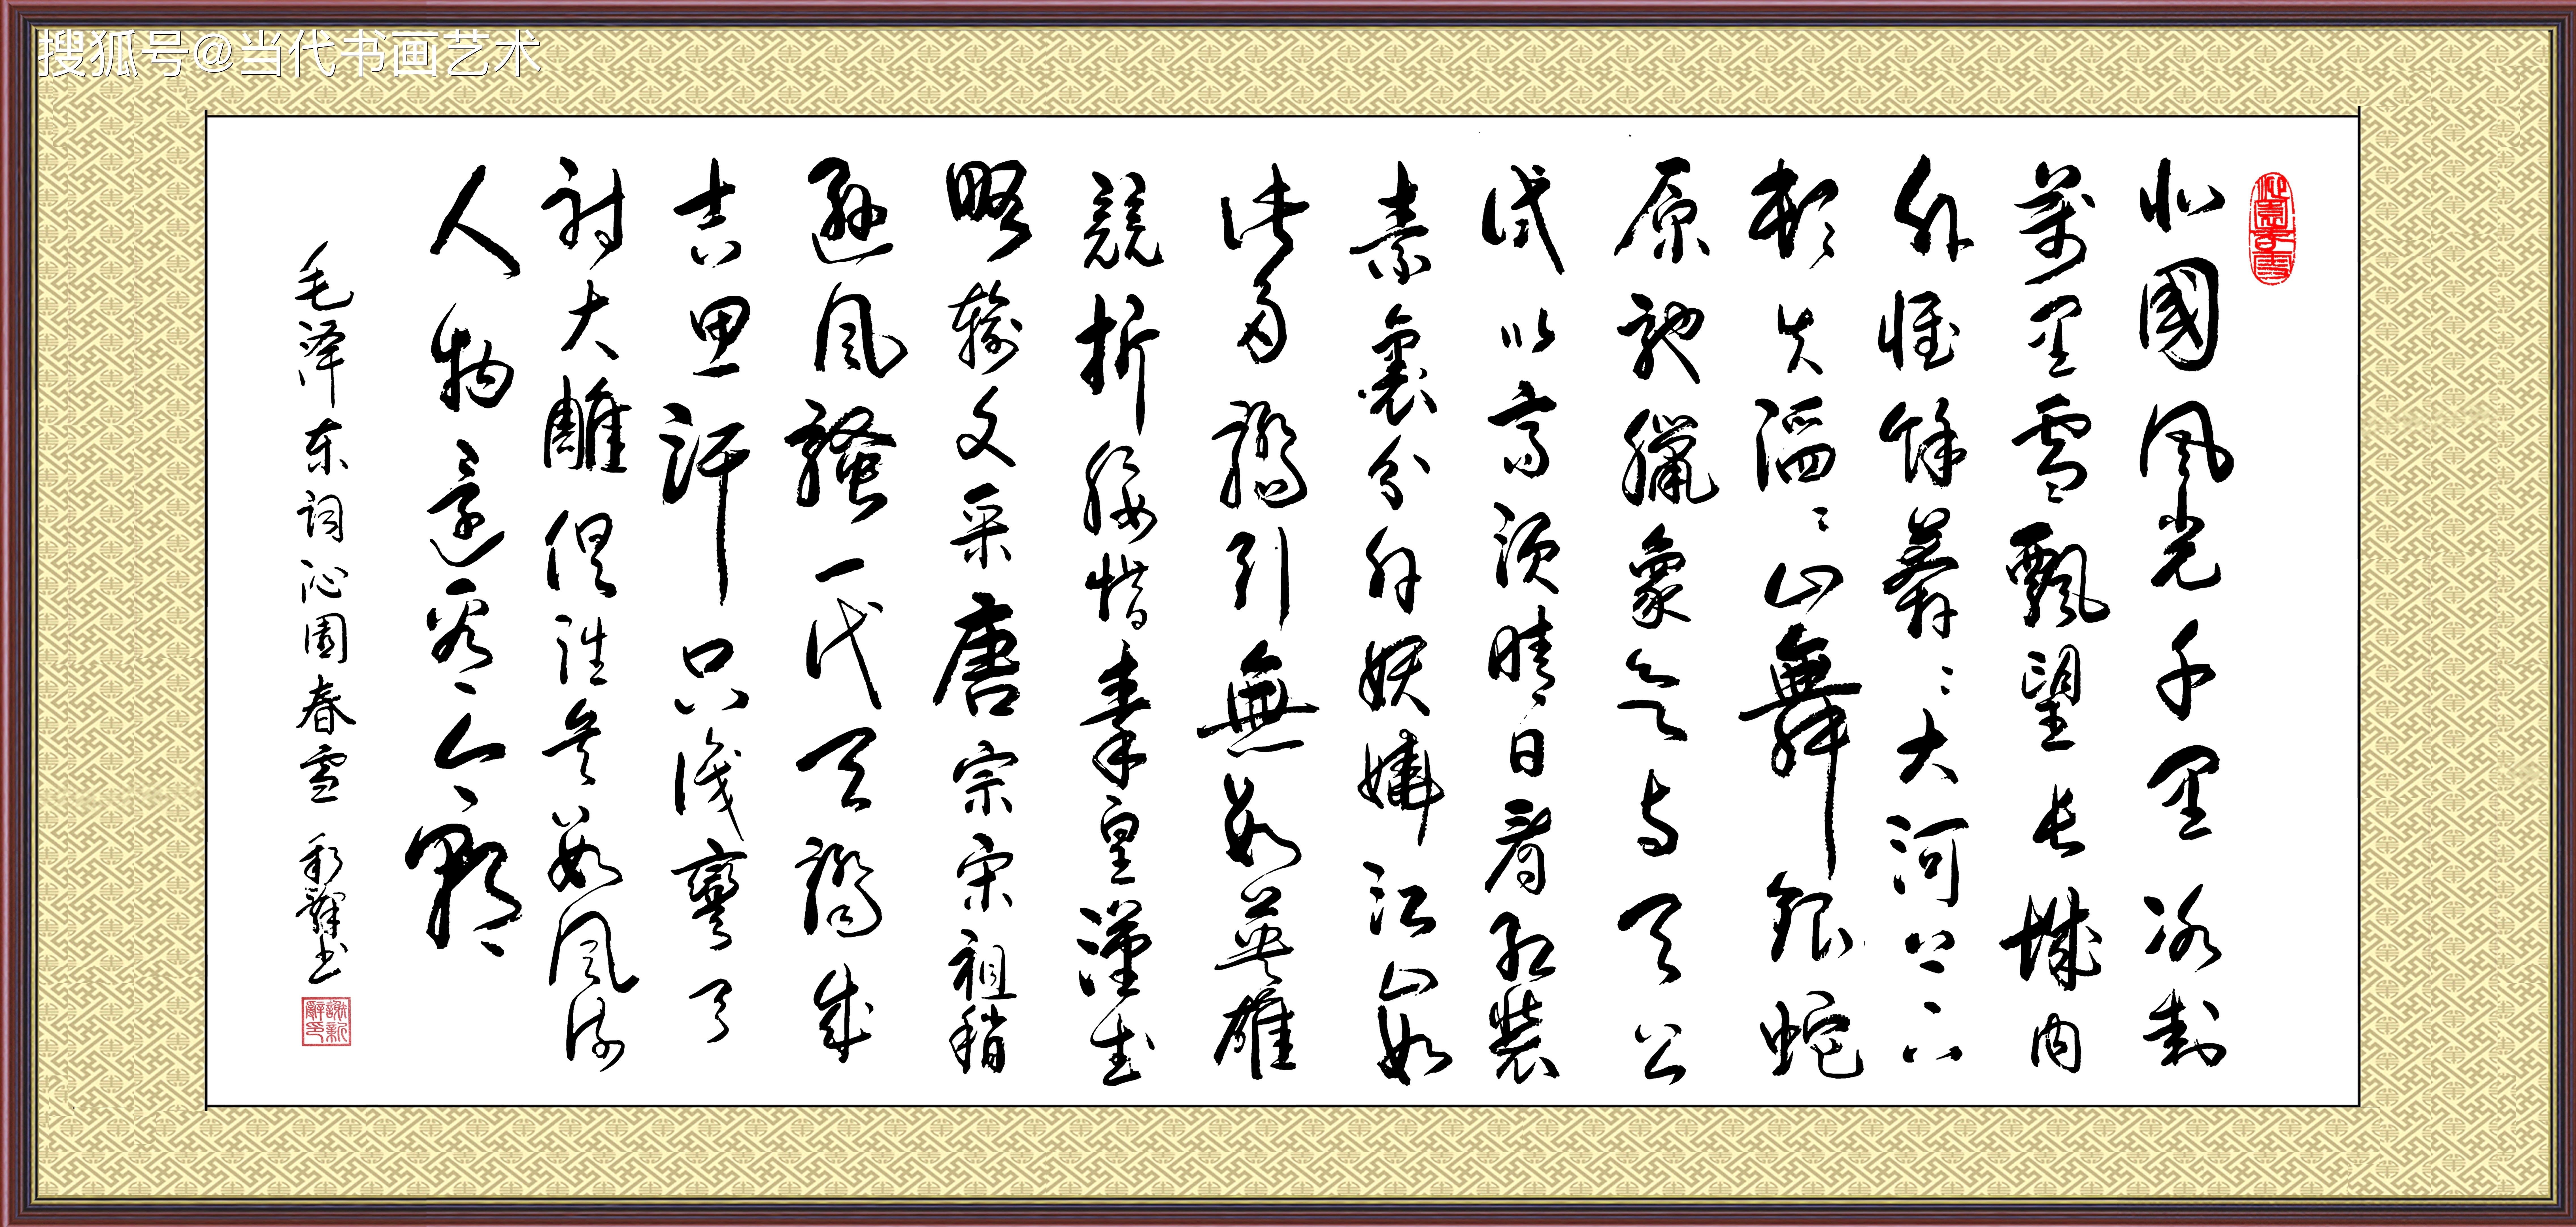 搜狐号@当代书画艺术
沁園春雪
北國風光千里冰封
萬里雪飄望長城内
外惟餘莽々大河上下
頓失滔々山舞銀蛇
原馳臘象欲与天公
試比高須晴日看红裝
素裹分外妖嬈江山如
此多嬌引無數英雄
競折腰惜秦皇漢武
略輸文采唐宗宋祖稍
遜風騷一代天驕成
吉思汗只識彎弓
射大雕俱往矣數風流
人物還看今朝
毛泽东词沁園春雪 新辭书
謝新辭印